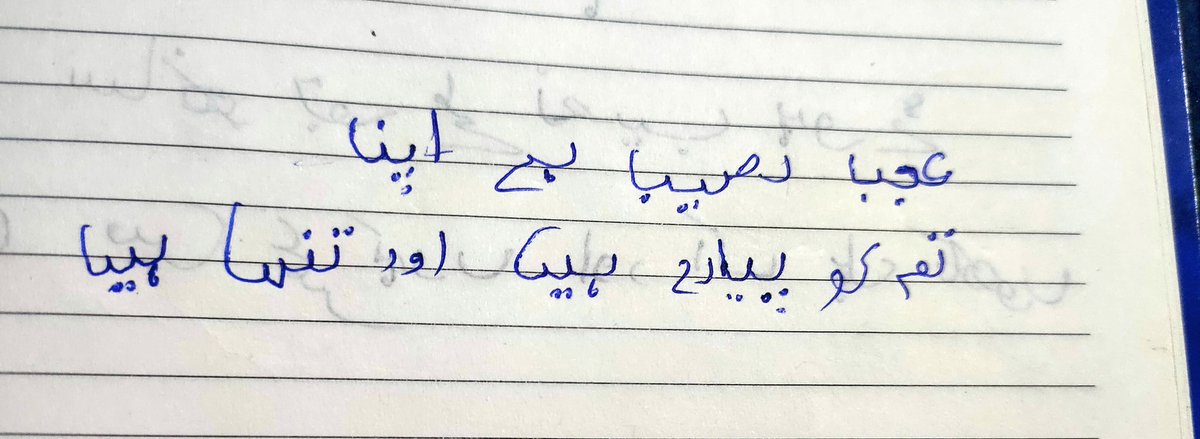 عجب نصیب ہے اپنا
تم کو پیارے ہیں اور تنہا ہیں